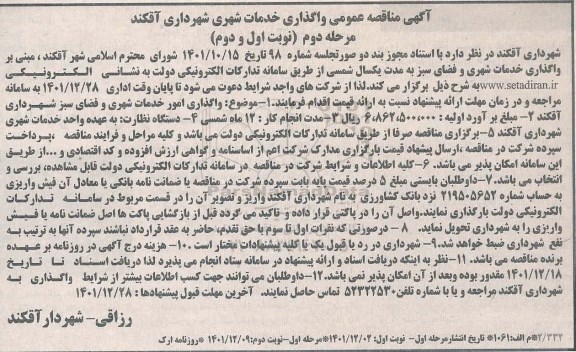 آگهی مناقصه عمومی واگذاری خدمات شهری شهرداری آقکند
مرحله دوم (نوبت اول و دوم)
شهرداری آقکند در نظر دارد با استناد مجوز بند دو صورتجلسه شماره ۹۸ تاریخ ۱۴۰۱/۱۰/۱۵ شورای محترم اسلامی شهر آقکند ، مبنی بر
واگذاری خدمات شهری و فضای سبز به مدت یکسال شمسی از طریق سامانه تدارکات الکترونیکی دولت به نشـانــی الـکـتـرونـیـکـی
www.setadiran.ir به شرح ذیل برگزار می کند.لذا از شرکت های واجد شرایط دعوت می شود تا پایان وقت اداری ۱۴۰۱/۱۲/۲۸ به سامانه
مراجعه و در زمان مهلت ارائه پیشنهاد نسبت به ارائه قیمت اقدام فرمایند.۱-موضوع: واگذاری امور خدمات شهری و فضای سبز شهـرداری
آقکند ۲- مبلغ بر آورد اولیه : ۶۰۸۶۲۰۵۰۰۰۰۰ ریال ۳-مدت انجام کار: ۱۲ ماه شمسی ۴- دستگاه نظارت: به عهده واحد خدمات شهری
شهرداری آقکند ۵-برگزاری مناقصه صرفا از طریق سامانه تدارکات الکترونیکی دولت می باشد و کلیه مراحل و فرایند مناقصه ،پرداخت
سپرده شرکت در مناقصه ،ارسال پیشنهاد قیمت بارگزاری مدارک شرکت اعم از اساسنامه و گواهی ارزش افزوده و کد اقتصادی و ...از طریق
این سامانه امکان پذیر می باشد. ۶-کلیه اطلاعات و شرایط شرکت در مناقصه در سامانه تدارکات الکترونیکی دولت قابل مشاهده، بررسی و
انتخاب می باشد.۷-داوطلبان بایستی مبلغ ۵ درصد قیمت پایه بابت سپرده شرکت در مناقصه یا ضمانت نامه بانکی یا معادل آن فیش واریزی
به حساب شماره ۲۱۹۵۰۵۶۵۲ نزد بانک کشاورزی به نام شهرداری آقکند واریز و تصویر آن را در قسمت مربوط در سامـانـه تـدارکـات
الکترونیکی دولت بارگذاری نمایند.واصل آن را در پاکتی قرار داده و تاکید می گردد قبل از بازگشایی پاکت ها اصل ضمانت نامه یا فـیـش
واریزی را به شهرداری تحویل نماید. ۸ - درصورتی که نفرات اول تا سوم با حق تقدم، حاضر به عقد قرارداد نباشند سپرده آنها به ترتیب به
نفع شهرداری ضبط خواهد شد.۹- شهرداری در رد یا قبول یک یا کلیه پیشنهادات مختار است .۱۰- هزینه درج آگهی در روزنامه بر عـهـده
برنده مناقصه می باشد. ۱۱-نظر به اینکه دریافت اسناد و ارائه پیشنهاد در سامانه ستاد انجام می پذیرد لذا دریافت اسـنـاد تا تـاریـخ
۱۴۰۱/۱۲/۱۸ مقدور بوده وبعد از آن امکان پذیر نمی باشد.۱۲-داوطلبان می توانند جهت کسب اطلاعات بیشتر از شرایط واگـذاری به
شهرداری آقکند مراجعه و یا با شماره تلفن۵۲۳۲۲۵۳۰ تماس حاصل نمایند. آخرین مهلت قبول پیشنهادها : ۱۴۰۱/۱۲/۲۸
رزاقی-شهردارآقکند
۲/۳۳۴*م الف:۱۰۶۱* تاریخ انتشارمرحله اول- نوبت اول: ۱۴۰۱/۱۲/۰۲ *مرحله اول-نوبت دوم:۱۴۰۱/۱۲/۰۹ *روزنامه ارک